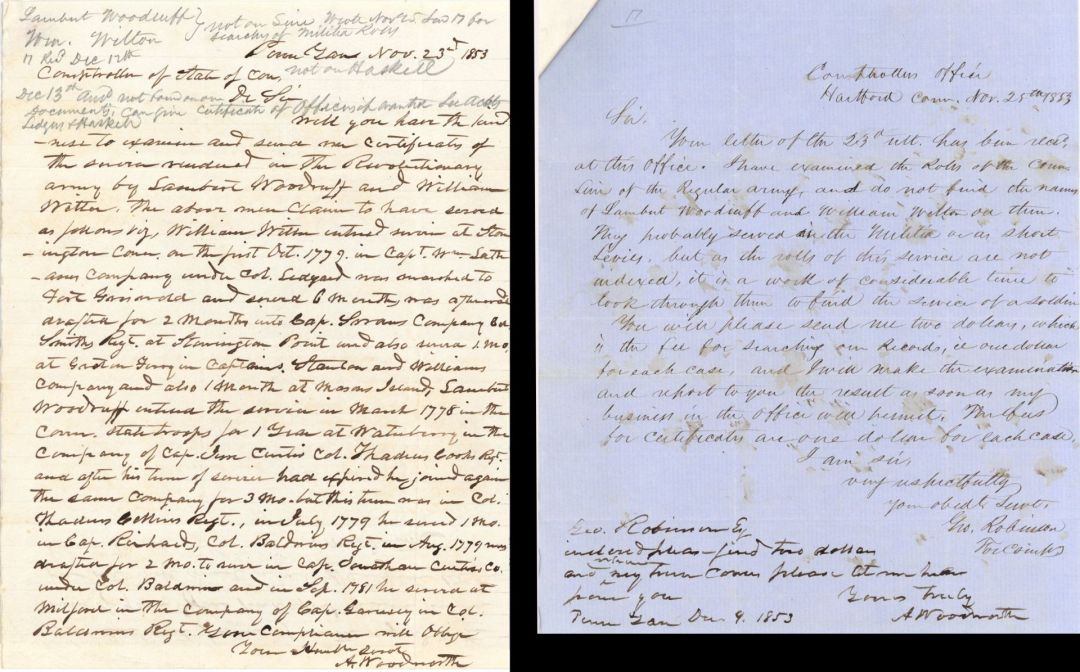 Lambert Woodruff } not on Line. Wrote Nov 25. Lord 17 for
Wm. Wilton searches of Militia Rolls
17 Recd Dec 12th
Penn Yan Nov. 23d 1853
Comptroller of State of Con, not on Haskell
Dec 13th And not found on our
Dr Sir
Documents, Can give Certificate of Officers if wanted See Accts
Ledger & Haskell
Will you have the kind
-ness to examine and send me certificates of
the service rendered in the Revolutionary
army by Lambert Woodruff and William
Witter. The above men claim to have served
as follows viz, William Witter entered service at Ston
-ington Conn. on the first Oct. 1779. in Capt. Wm Lath
-ams Company under Col. Ledyard was marched to
Fort Griswold and served 6 months, was afterward
drafted for 2 months into Cap. Swans Company Col.
Smiths Regt. at Stonington Point and also served 1. mo.
at Groton Ferry in Captains Stanton and Williams
Company and also 1 month at Masons Island, Lambert
Woodruff entered the service in March 1778 in the
Conn. state troops for 1 Year at Waterbury in the
Company of Cap. Jesse Curtis Col. Thadeus Cooks Regt.
and after his time of service had expired he joined again
the same Company for 3 Mo. but this time was in Col.
Thadeus Regt., in July 1779 he served 1 mo.
in Cap. Richards, Col. Baldwins Regt. in Aug. 1779 was
drafted for 2 mo. to serve in Cap. Jonathan Curtis Co.
under Col. Baldwin and in Sep. 1781 he served at
Milford in the Company of Cap. Garnsey in Col.
Baldwins Regt. Your Compliance will Oblige
Your Humble Servt
A. Woodworth
17
Comptrollers Office
Hartford Conn. Nov. 25th 1853
Sir.
Your letter of the 23d ult. has been recd,
at this Office. I have examined the Rolls of the Conn
Line of the Regular army, and do not find the names
of Lambert Woodruff and William Wilton on them.
They probably served in the Militia or as short
Levies. but as the rolls of this service are not
indexed, it is a work of considerable time to
look through them to find the service of a soldier
You will please send me two dollars, which
is the fee for searching our Records, ie one dollar
for each case, and I will make the examination
and report to you the result as soon as my
business in the office will permit. The fees
for certificates are one dollar for each case,
I am sir,
very respectfully
your obedt Servt.
Geo. Robinson
For Compt
Geo. Robinson Esq
inclosed pleas find two dollars
and when my turn comes please let me hear
from you Yours truly
Penn Yan Dec 9. 1853 A Woodworth